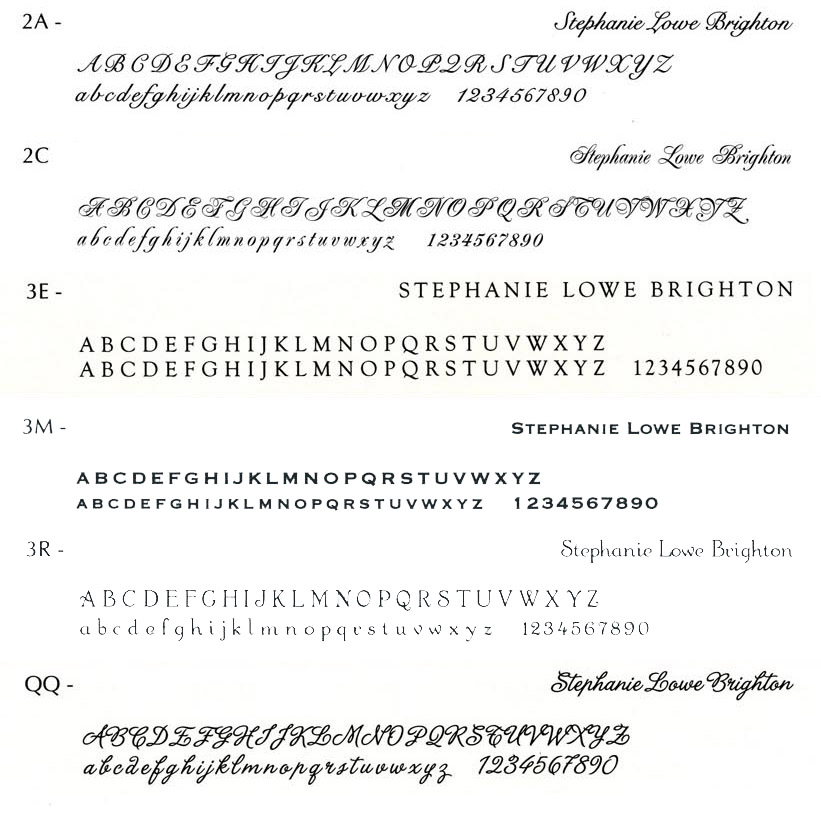 2A - Stephanie Lowe Brighton
ABCDEFGHIJKLMNOPQRSTUVWXYZ
abcdefghijklmnopqrstuvwxyz 1234567890
2C Stephanie Lowe Brighton
ABCDEFGHIJKLMNOPQRSTUVWXYZ
abcdefghijklmnopqrstuvwxyz 1234567890
3E - STEPHANIE LOWE BRIGHTON
ABCDEFGHIJKLMNOPQRSTUVWXYZ
ABCDEFGHIJKLMNOPQRSTUVWXYZ 1234567890
3M - STEPHANIE LOWE BRIGHTON
ABCDEFGHIJKLMNOPQRSTUVWXYZ
ABCDEFGHIJKLMNOPQRSTUVWXYZ 1234567890
3R - Stephanie Lowe Brighton
ABCDEFGHIJKLMNOPQRSTUVWXYZ
abcdefghijklmnopqrstuvwxyz 1234567890
QQ - Stephanie Lowe Brighton
ABCDEFGHIJKLMNOPQRSTUVWXYZ
abcdefghijklmnopqrstuvwxyz 1234567890